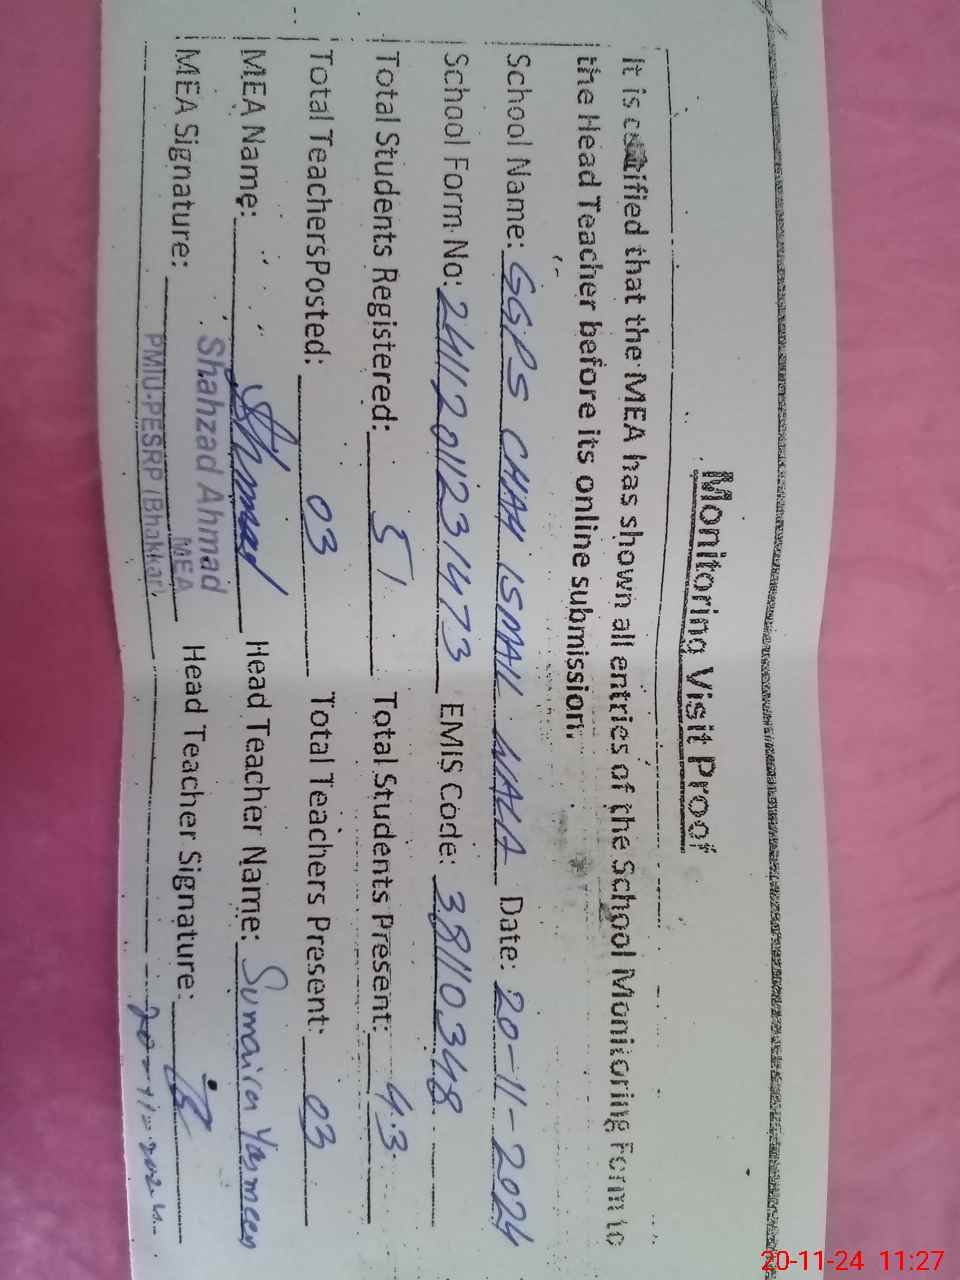 Monitoring Visit Proof
It is certified that the MEA has shown all entries of the School Monitoring Form to
the Head Teacher before its online submission.
School Name: GGPS CHAH ISMAIL WALA Date: 20-11-2024
School Form No: 24112011231473 EMIS Code: 38110348
Total Students Registered: 51 Total Students Present: 43
Total Teachers Posted: 03 Total Teachers Present: 03
MEA Name: Head Teacher Name: Sumaira Yasmeen
Shahzad Ahmad
MEA Signature: MEA Head Teacher Signature:
PMIU-PESRP (Bhakkar)
20-11-2024
20-11-24 11:27